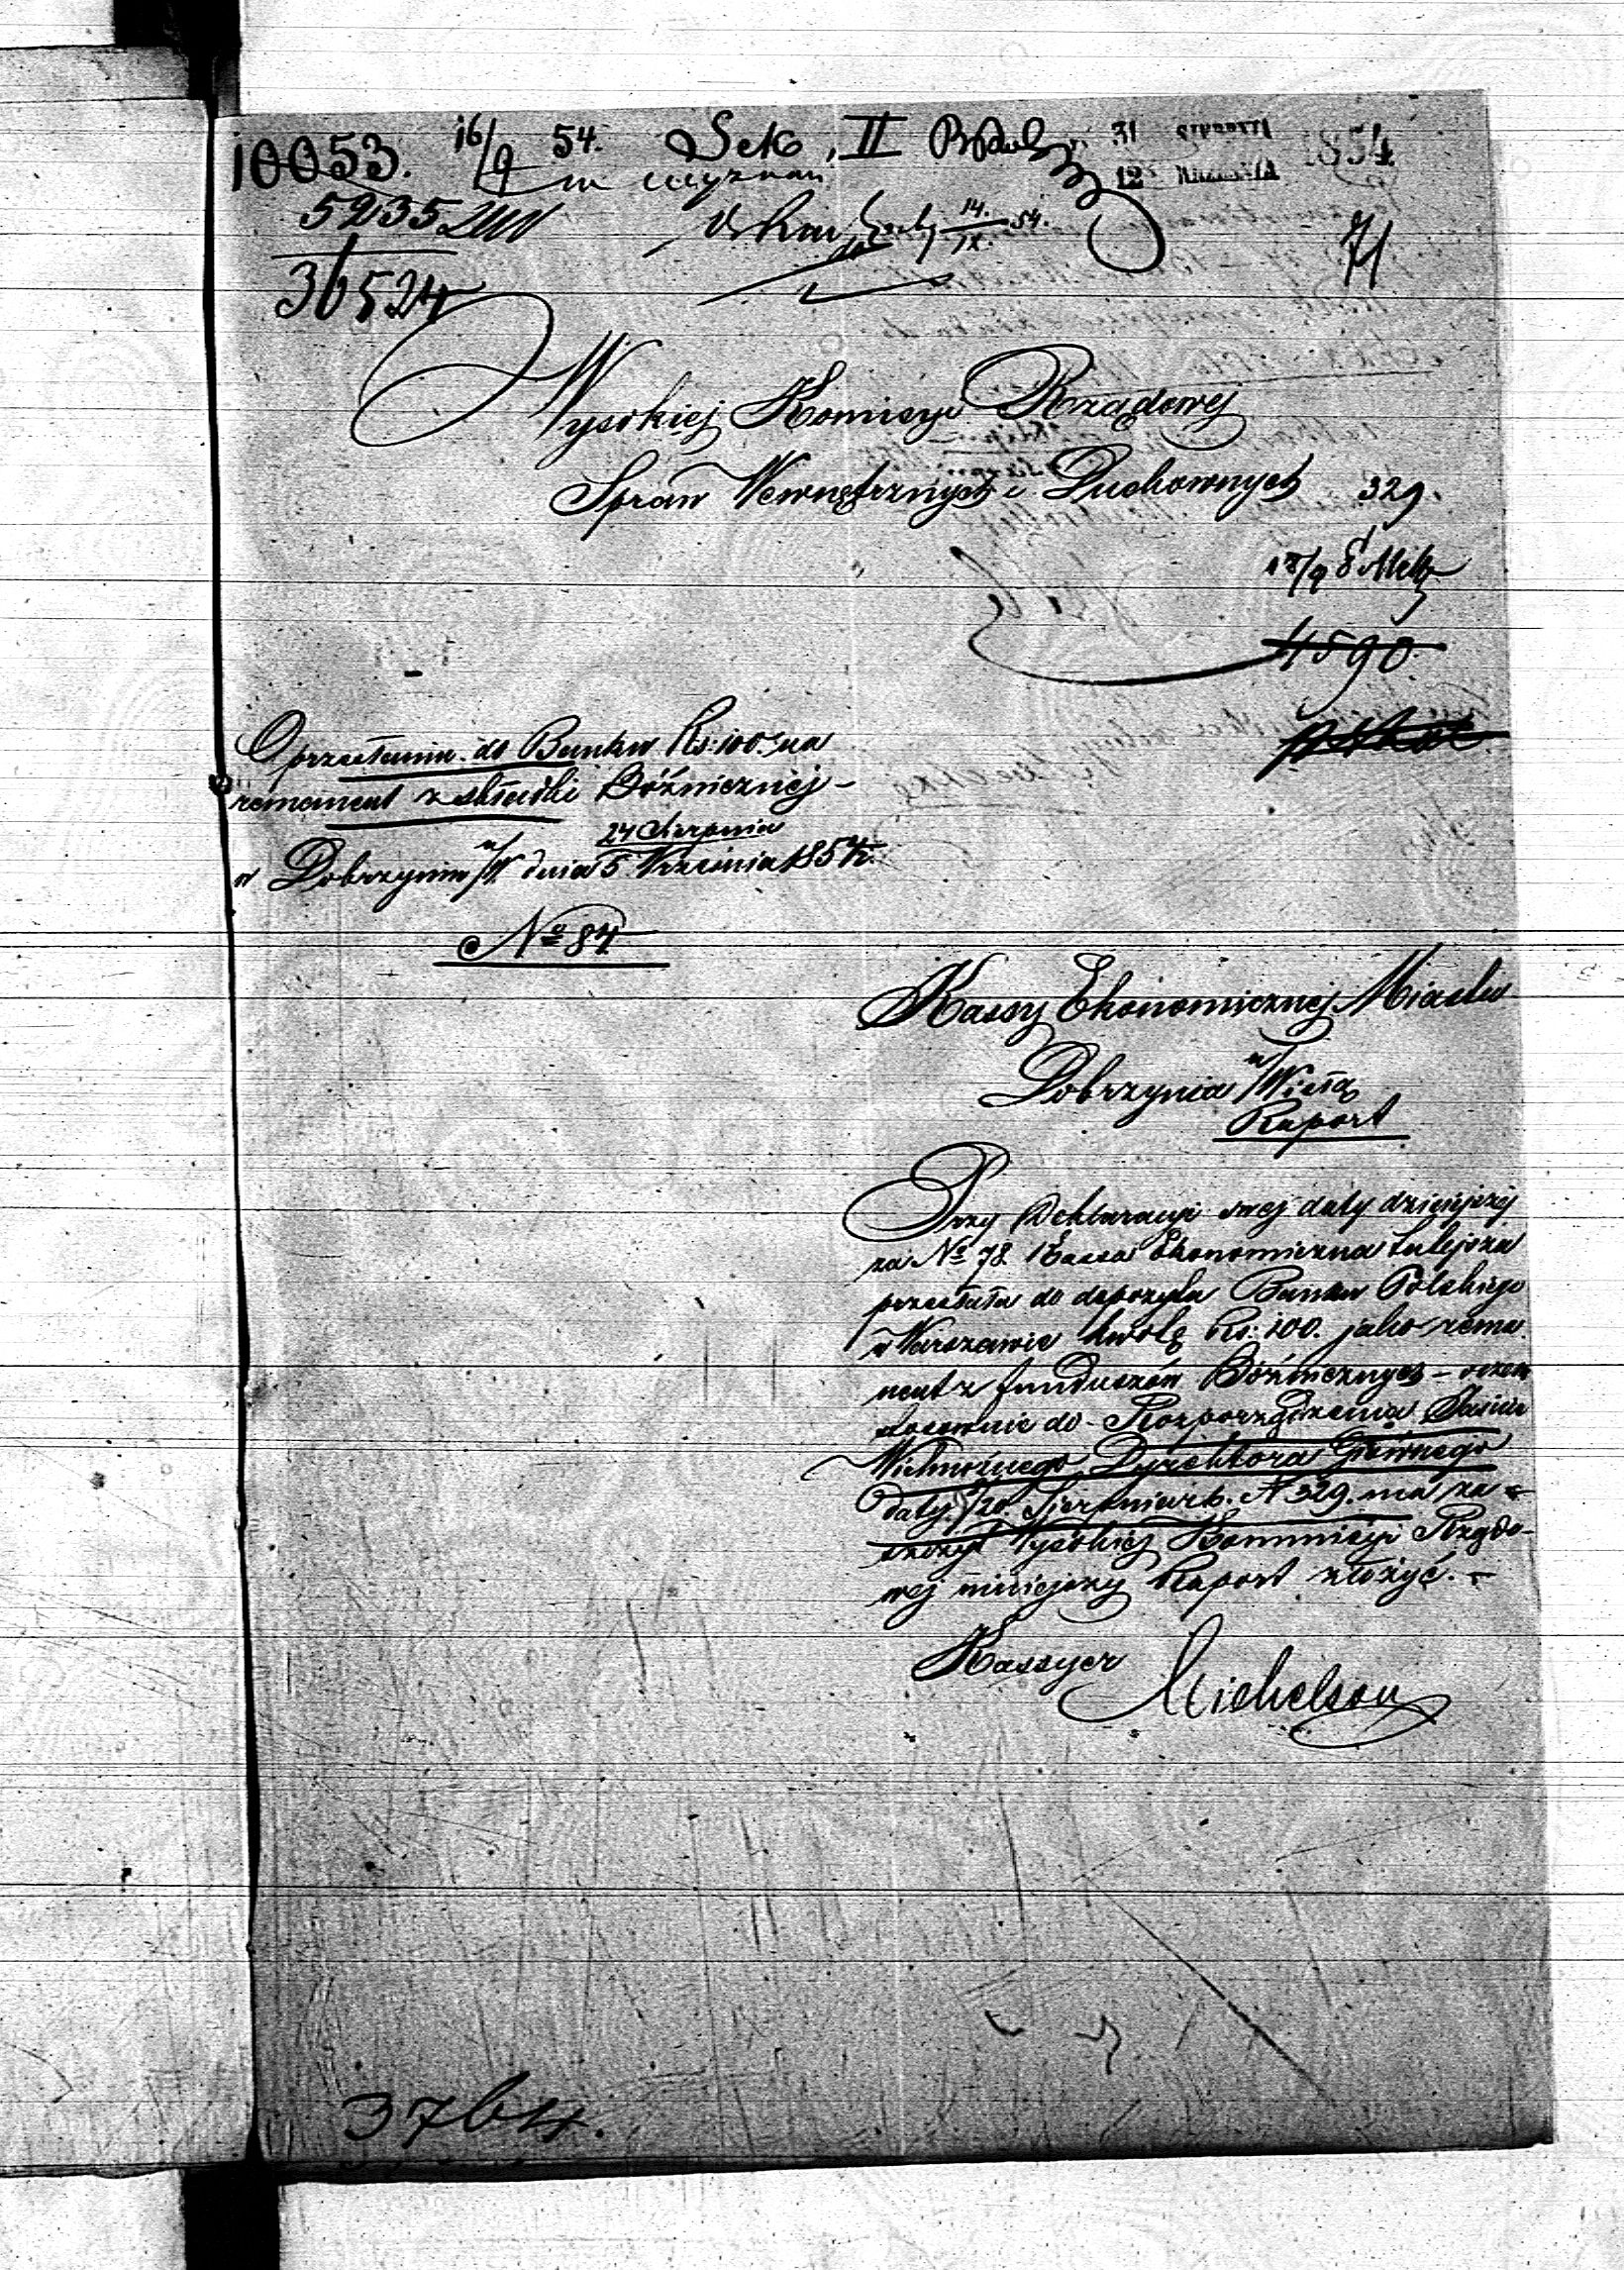 10053. 16/9 54. Sek. II
31 SIERPNIA 1854
12 WRZEŚNIA
w wyznań
5235
36524
14./IX. 54.
71
Wysokiej Komisyi Rządowej
Spraw Wewnętrznych i Duchownych
329.
18/9
4590.
O przesłaniu do Banku Rs: 100. na
remanent z składki Bóźniczniej –
24 Sierpnia
w Dobrzyniu n/W. dnia 5 Września 1854 r.
№ 84
Kassy Ekonomicznej Miasta
Dobrzynia n/Wisłą
Raport
Przy Deklaracyi swej daty dzisiejszej
za № 78. Kassa Ekonomiczna tutejsza
przesłała do depozytu Banku Polskiego
w Warszawie kwotę Rs: 100. jako rema
nent z funduszów Bóźnicznych – o czem
stosownie do Rozporządzenia Jaśnie
Wielmożnego Dyrektora Głównego
daty /20 Sierpnia r.b. N 329. ma za
szczyt Wysokiej Kommissyi Rządo-
wej niniejszy Raport złożyć. –
Kassyer
Michelson
3764.